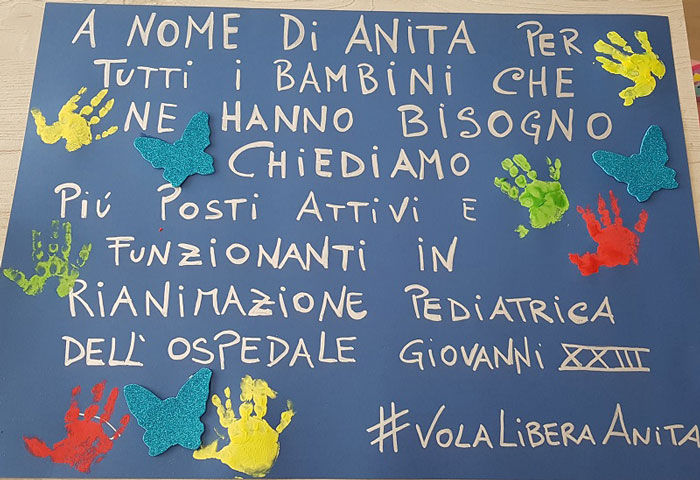 A NOME DI ANITA PER
TUTTI I BAMBINI CHE
NE HANNO BISOGNO
CHIEDIAMO
PIÚ POSTI ATTIVI E
FUNZIONANTI IN
RIANIMAZIONE PEDIATRICA
DELL' OSPEDALE GIOVANNI XXIII
#VOLALIBERAANITA